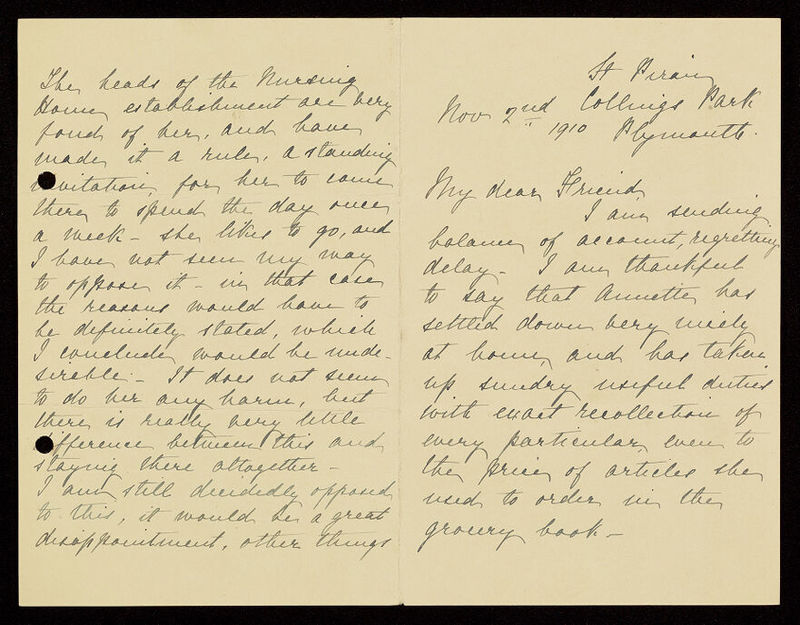 St Pirain
Collings Park
Nov 2nd 1910 Plymouth.
My dear Friend,
I am sending
balance of account, regretting
delay - I am thankful
to say that Annette has
settled down very nicely
at home, and has taken
up sundry useful duties
with exact recollection of
every particular, even to
the price of articles she
used to order in the
grocery book -
The heads of the Nursing
Home establishment are very
fond of her, and have
made it a rule, a standing
invitation, for her to come
there to spend the day once
a week - she likes to go, and
I have not seen my way
to oppose it - in that case
the reasons would have to
be definitely stated, which
I conclude would be unde-
sirable - It does not seem
to do her any harm, but
there is really very little
difference between this and
staying there altogether -
I am still decidedly opposed
to this, it would be a great
disappointment, other things